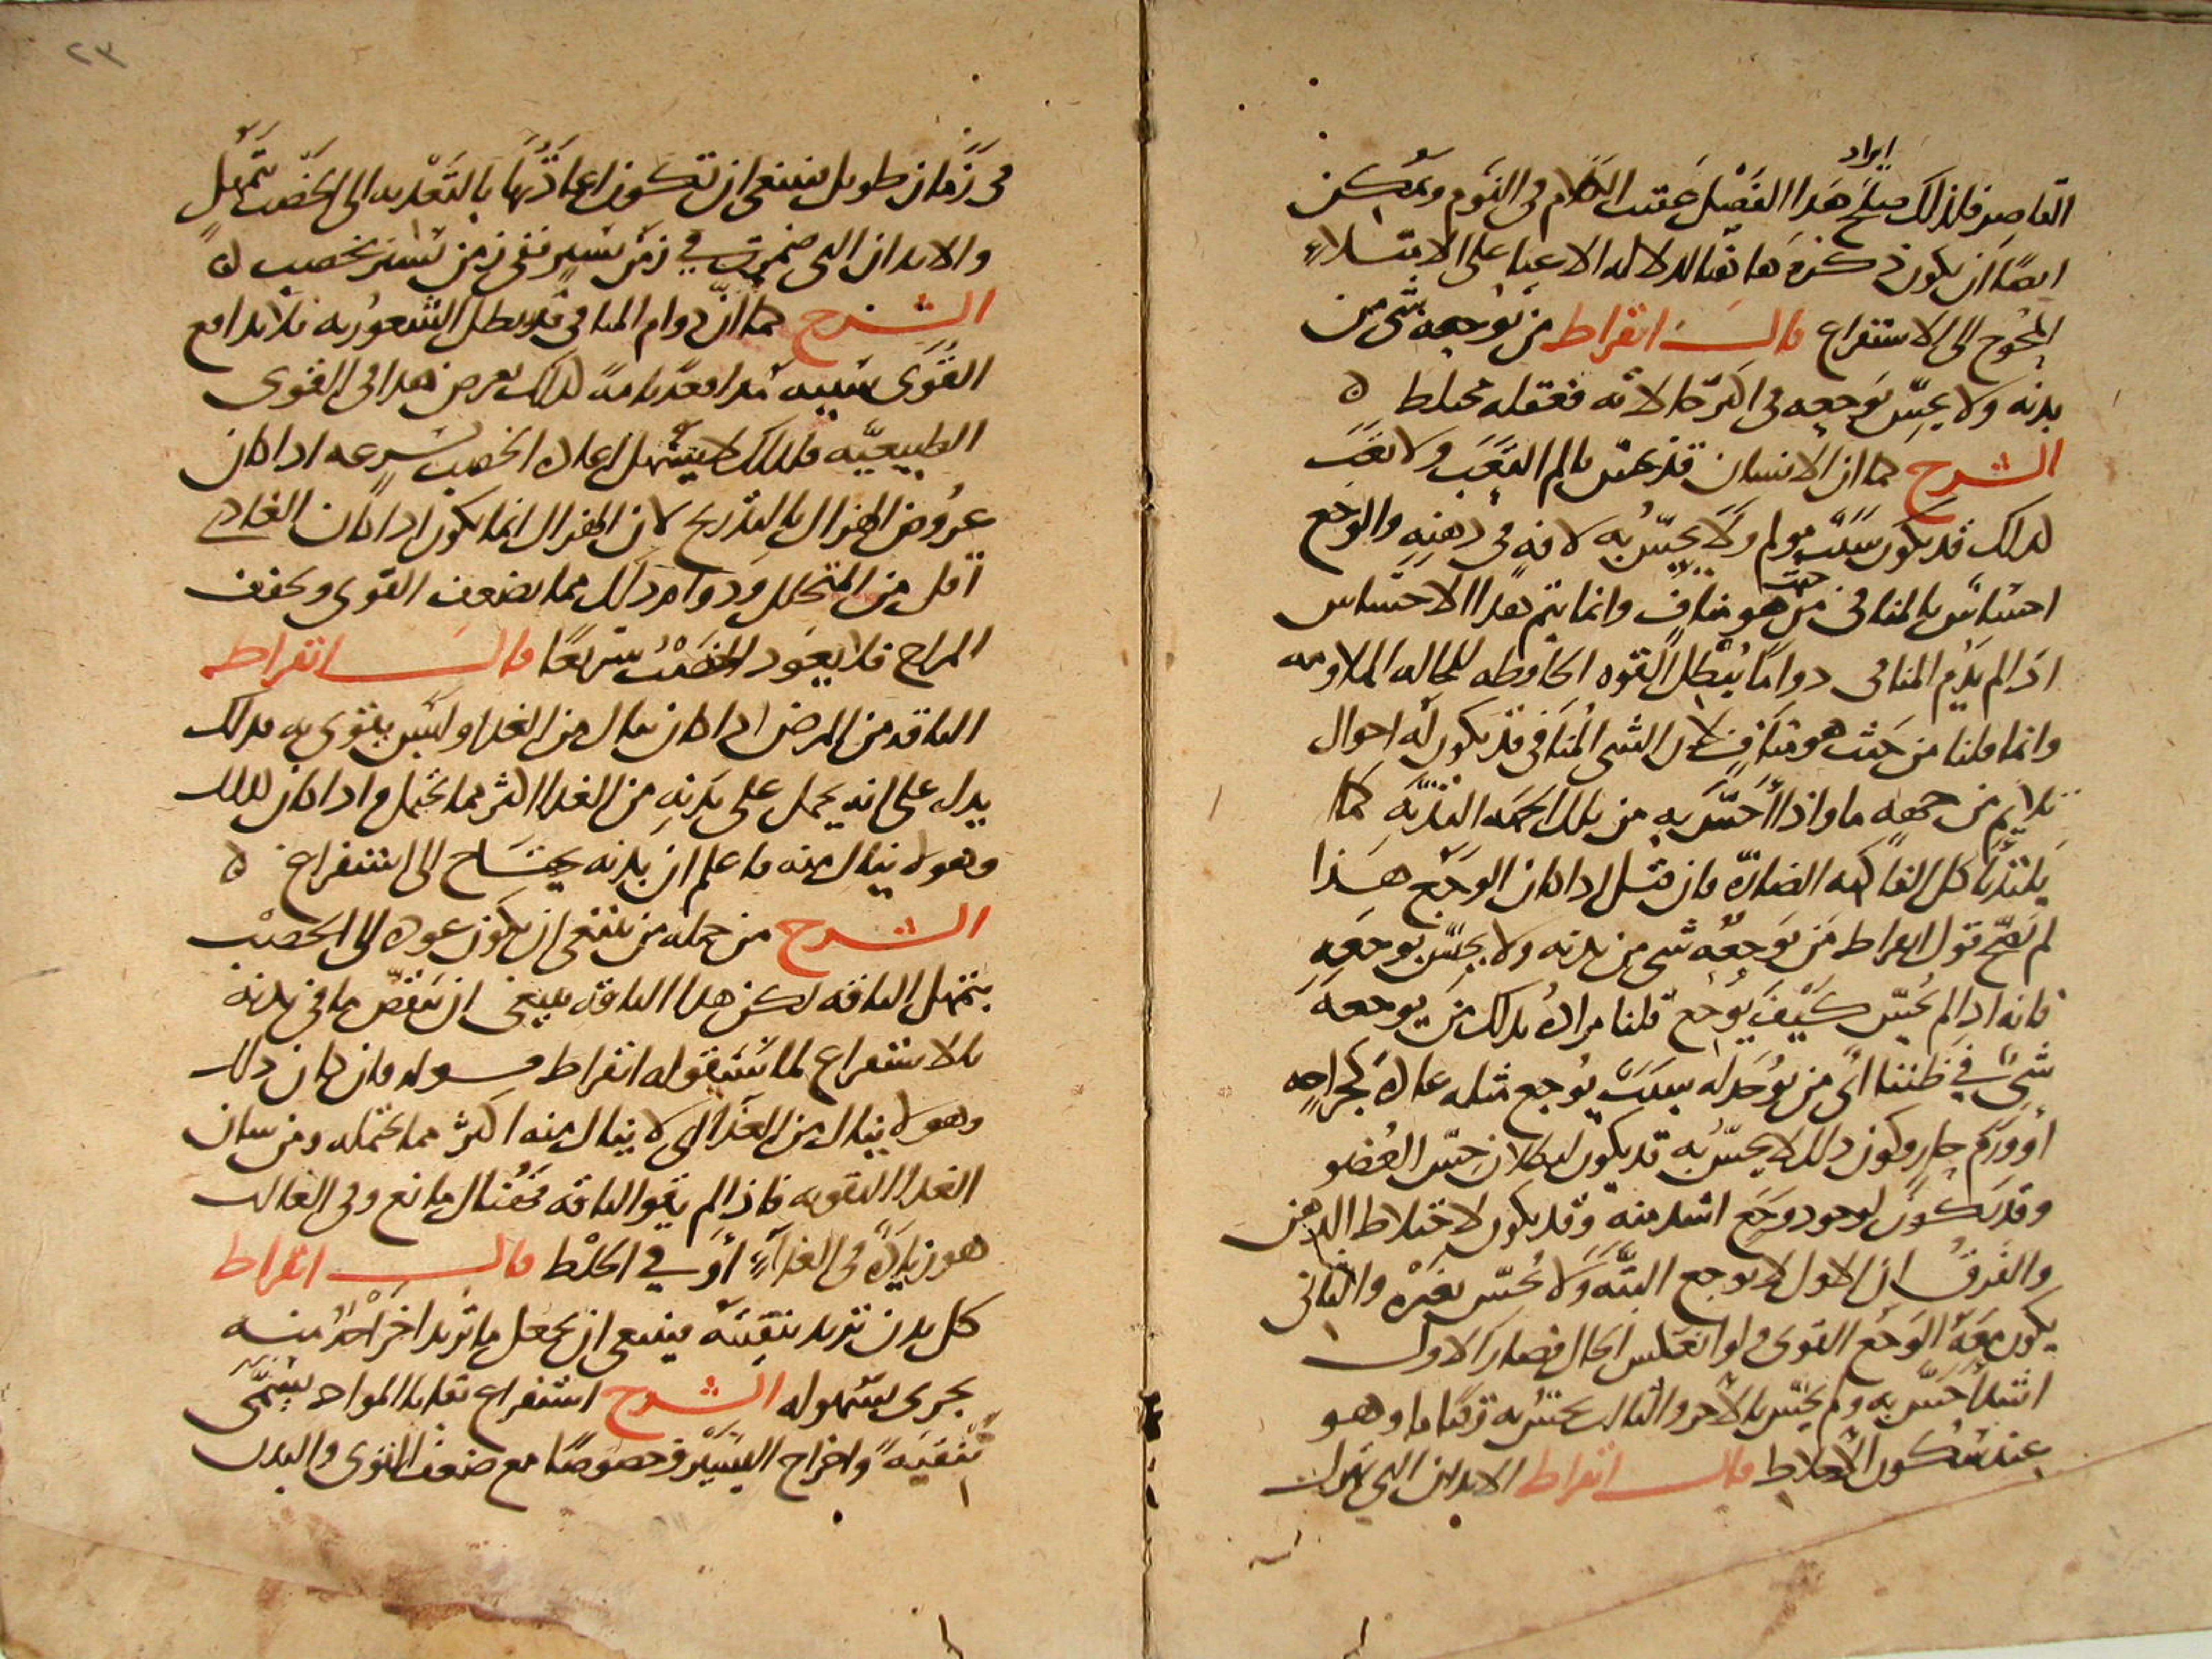 ايراد
القاصر فلذلك صلح هذا الفصل عقيب الكلام في النوم ويمكن
ايضا ان يكون ذكره هاهنا لدلالة الاعيا على الامتلاء
المحوج الى الاستفراغ قال ابقراط من يوجعه شي من
بدنه ولا يحس بوجعه في اكثر حالاته فعقله مختلط ه
الشرح كما ان الانسان قد يحس بالم التعب ولا تعب
لذلك قد يكون سبب مولم ولا يحس به لافة في ذهنه والوجع
احساس بالمنافي من حيث هو مناف وانما يتم هذا الاحساس
اذا لم يدم المنافي دواما يبطل القوة الحافظة للحالة الملاومه
وانما قلنا من حيث هو مناف لان الشي المنافي قد يكون له احوال
يلايم من جهة ما واذا احس به من تلك الجهة التذ به كما
يلتذ باكل الفاكهة الضارة فان قيل اذا كان الوجع هذا
لم يصح قول ابقراط من يوجعه شي من بدنه ولا يحس بوجعه
فانه اذا لم يحس كيف يوجع قلنا مراده بذلك من يوجعه
شي في ظننا اي من يوجد له سبب يوجع مثله عادة كجراحه
او ورم حار وكون ذلك لا يحس به قد يكون لبطلان حس العضو
وقد يكون لوجود وجع اشد منه وقد يكون لاختلاط الذهن
والفرق ان الاول لا يوجع البتة ولا يحس بغيره والثاني
يكون معه الوجع القوي ولو انعكس الحال فصار الاول
اشد احس به ولم يحس بالاخر والثالث يحس به زمانا ما وهو
عند سكون الاخلاط قال ابقراط الابدان التي تهزل
٢٣
في زمان طويل فينبغي ان تكون اعادتها بالتغذيه الى الخصب بتمهل
والابدان التي ضمرت في زمن يسير ففي زمن يسير تخصب ه
الشرح كما ان دوام المنافي قد يبطل الشعور به فلا تدافع
القوى سببه مدافعة تامة لذلك يعرض هذا في القوى
الطبيعيه فلذلك لا يتمهل اعادة الخصب بسرعه اذا كان
عروض الهزال بالتدريج لان الهزال انما يكون اذا كان الغاذي
اقل من المتحلل ودوام ذلك مما يضعف القوى ويجفف
المزاج فلا يعود الخصب سريعا قال ابقراط
الناقه من المرض اذا كان ينال من الغذا وليس يقوى به فذلك
يدل على انه يحمل على بدنه من الغذا اكثر مما يحتمل واذا كان كذلك
وهو لا ينال منه فاعلم ان بدنه يحتاج الى استفراغ ه
الشرح من جملة من ينبغي ان يكون عوده الى الخصب
بتمهل الناقه لكن هذا الناقه ينبغي ان ينفض ما في بدنه
بالاستفراغ لما سيقوله ابقراط قوله فان كان ذلك
وهو لا ينال من الغذا اي لا ينال منه اكثر مما يحتمله ومن شان
الغذا التقويه فاذا لم يقو الناقه فهناك مانع وفي الغالب
هو زيادة في الغذاء او في الخلط قال ابقراط
كل بدن تريد تنقيته فينبغي ان يجعل ما تريد اخراجه منه
يجري بسهوله الشرح استفراغ بقايا المواد يسمى
تنقية واخراج اليسير وخصوصا مع ضعف القوى والبدن